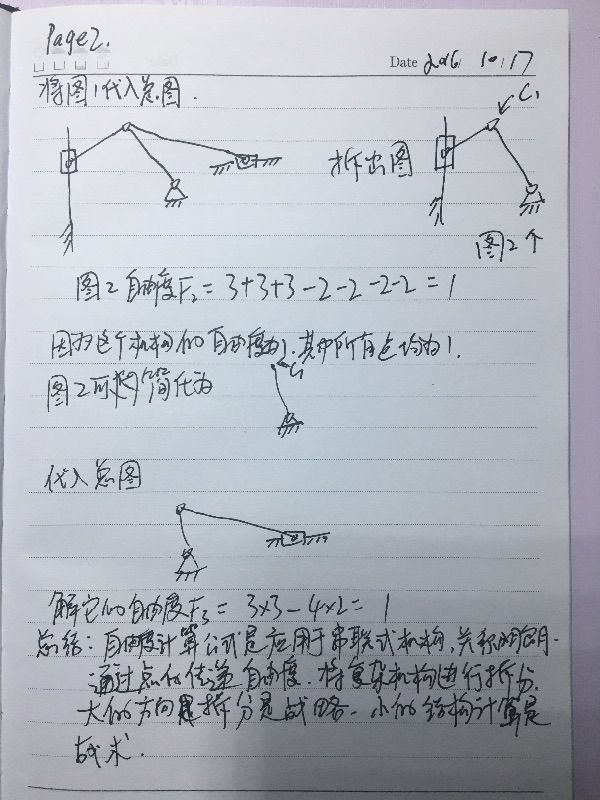 Page2.
Date 2016 10.17
将图1代入总图.
C1
拆出图
图2个
图2自由度F2 = 3+3+3-2-2-2-2 = 1
因为这个机构的自由度为1.其中所有点均为1.
C1
图2可 简化为
代入总图
解它的自由度F3 = 3×3-4×2= 1
总结:自由度计算公式是应用于串联式机构,关积
通过点的传递自由度.将复杂机构进行拆分.
大的方向是拆分是战略.小的结构计算是
战术.